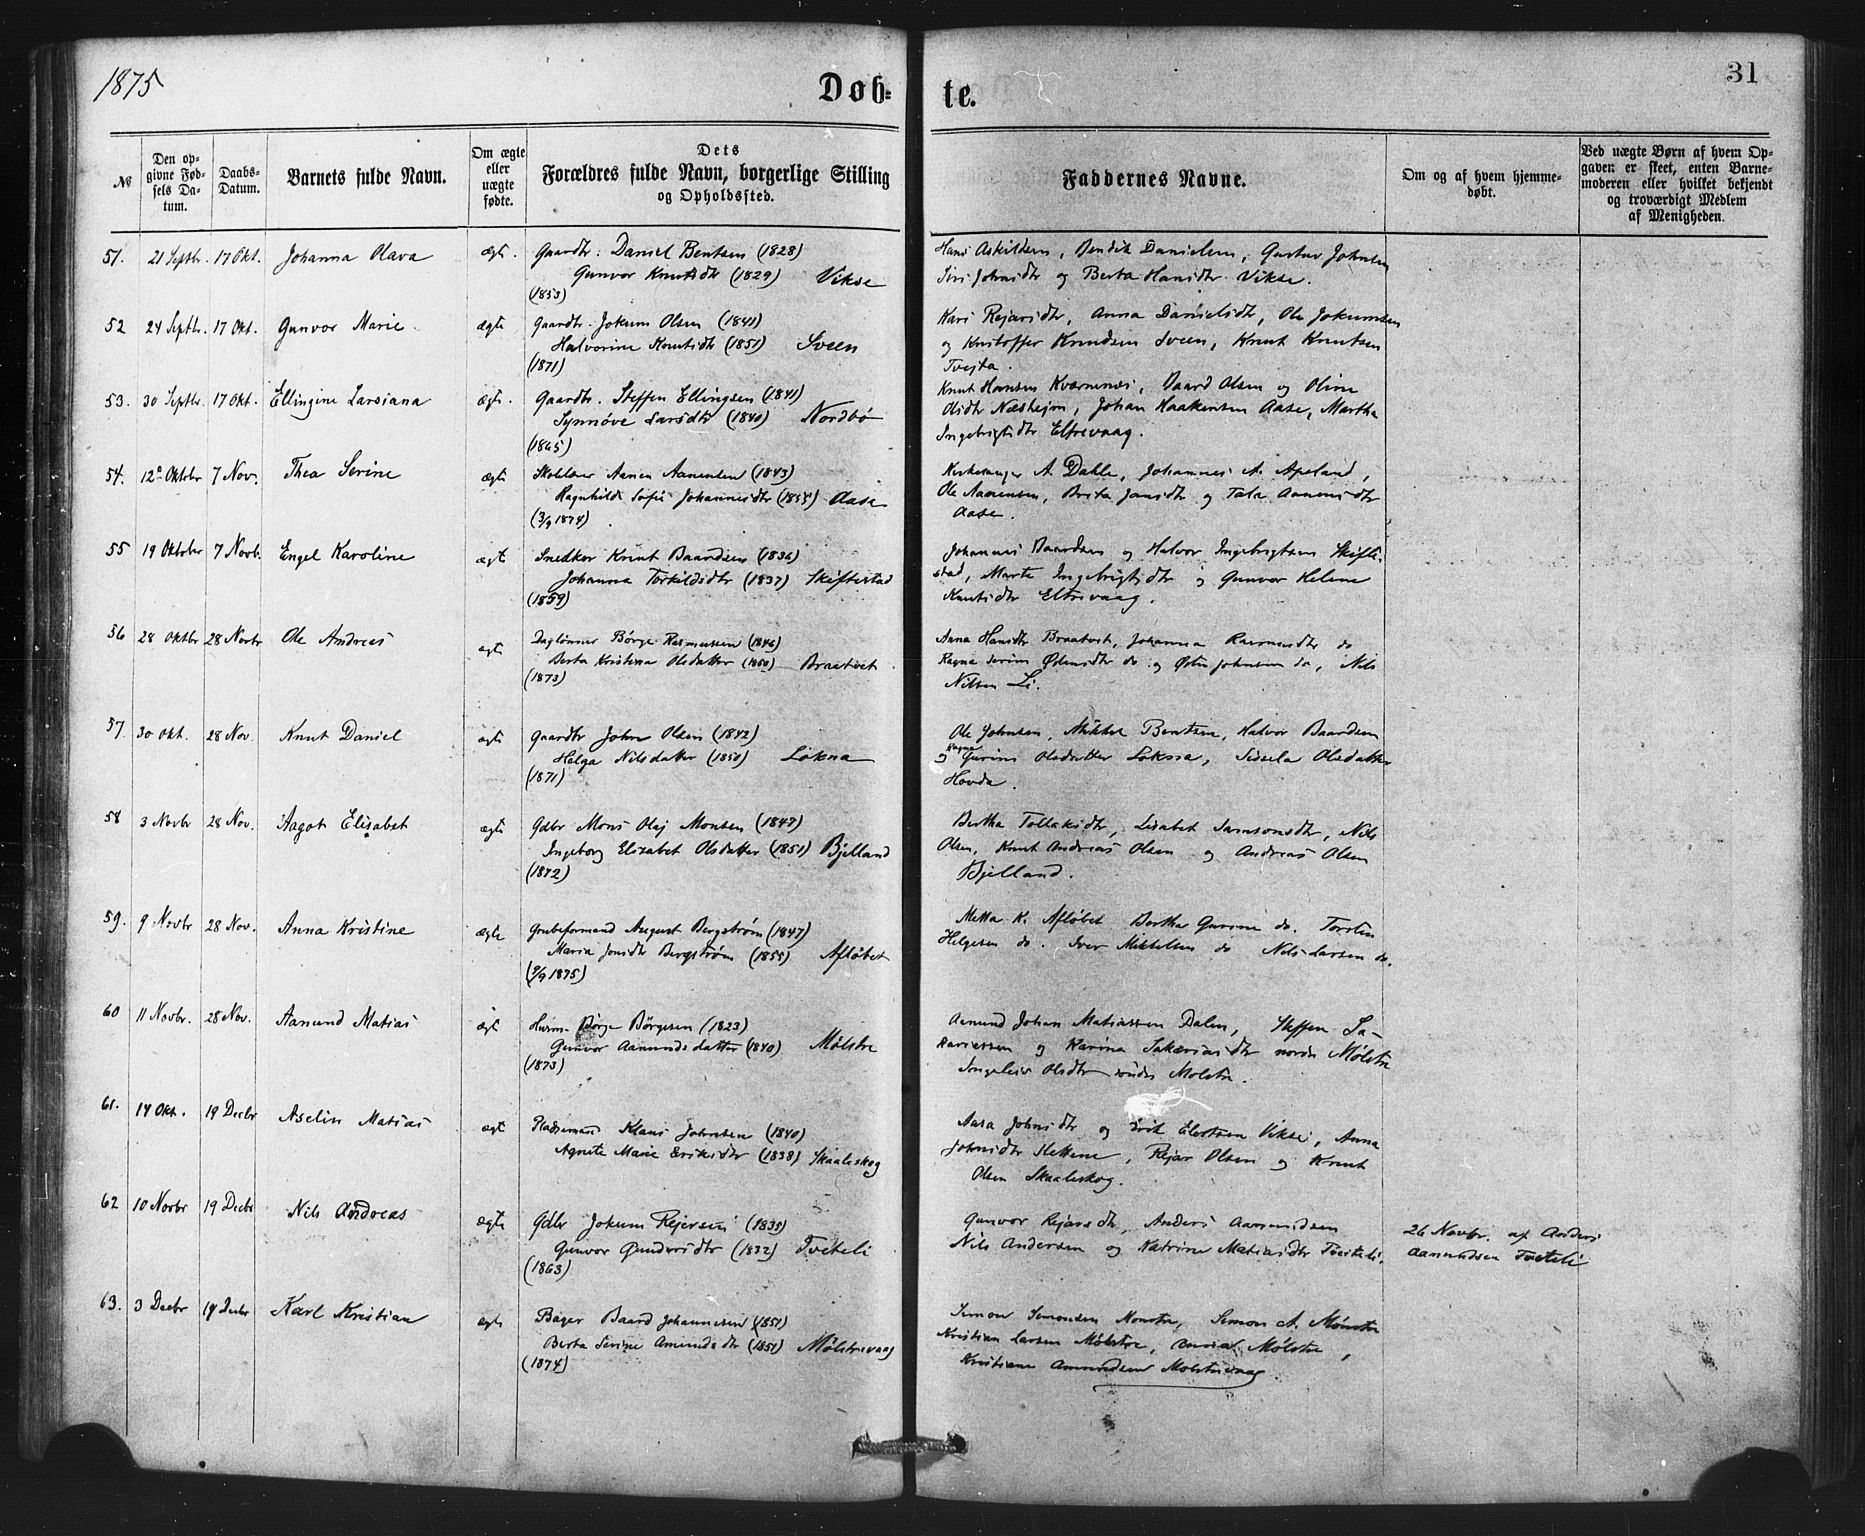 1875
Døb=
te.
31
№
Den op-
givne Fød-
sels Da-
tum.
Daabs-
Datum.
Barnets fulde Navn.
Om ægte
eller
uægte
fødte.
Dets
Forældres fulde Navn, borgerlige Stilling
og Opholdssted.
Faddernes Navne.
Om og af hvem hjemme-
døbt.
Ved uægte Børn af hvem Op-
gaven er skeet, enten Barne-
moderen eller hvilket bekjendt
og troværdigt Medlem
af Menigheden.
51. 21 Septbr. 17 Okt. Johanna Olava ægt. Gaardbr. Daniel Bentsen (1828)
Gunvor Knutsdtr (1829) Vikse
(1853)
Hans Askildsen, Bendik Danielsen, Gustav Johnsen
Siri Johnsdtr og Berta Hansdtr Vikse.
52 24 Septbr. 17 Okt. Gunvor Marie ægte Gaardbr. Jokum Olsen (1841)
Halvorine Knutsdtr (1851) Sveen
(1871)
Kari Rejarsdtr, Anna Danielsdtr, Ole Jokumsen
og Kristoffer Knudsen Sveen, Knut Knutsen
Tvejta.
53. 30 Septbr. 17 Okt. Ellingine Larsiana ægt. Gaardbr. Steffen Ellingsen (1841)
Synnøve Larsdtr (1840) Nordbø
(1865)
Knut Hansen Kværnenæs, Baard Olsen og Oline
Olsdtr Næshejm, Johan Haakensen Aase, Martha
Ingebrigtsdtr Eltrevaag.
54. 12te Oktober 7 Nov. Thea Serine ægte Skolelærer Aanen Aanensen (1843)
Ragnhilde Sofie Johannesdtr (1855) Aase
(3/9 1874).
Kirkesanger A. Dahle, Johannes A. Apeland,
Ole Aanensen, Brita Jansdtr og Tala Aanensdtr
Aase.
55 19 Oktober 7 Novb. Engel Karoline ægte Snedker Knut Baardsen (1836)
Johanna Torkildsdtr (1837) Skiftestad
(1859)
Johannes Baardsen og Halvor Ingebrigtsen Skifte-
stad, Marte Ingebrigtsdtr og Gunvor Helene
Knutsdtr Eltrevaag.
56 28 Oktbr 28 Novbr Ole Andreas ægte Daglønner Børge Rasmussen (1846)
Berta Kristina Olsdatter (1850) Braatvet
(1873)
Anna Hansdtr Braatvet, Johanna Rasmusdtr do
Ragna Serine Østensdtr do og Østen Johnsen do, Nils
Nilsen Li.
57 30 Okt. 28 Nov. Knut Daniel ægte Gaardbr John Olsen (1842)
Helga Nilsdatter (1850) Løkna
(1871)
Ole Johnsen, Mikkel Bentsen, Halvor Baardsen
og Ragna Gurine Olsdatter Løksna, Sidsela Olsdatter
Hovda.
58 3 Novbr 28 Nov. Aagot Elisabet ægte Gdbr Mons Olaj Monsen (1847)
Ingeborg Elizabet Olsdatter (1851) Bjelland
(1872)
Bertha Tollaksdtr, Lisabet Samsonsdtr, Nils
Olsen, Knut Andreas Olsen og Andreas Olsen
Bjelland.
59. 9 Novbr 28 Nov. Anna Kristine ægte Grubeformand August Bergstrøm (1847)
Maria Jensdtr Bergstrøm (1855) Afløbet
(9/9 1875)
Metta K. Afløbet Bertha Gurine do. Torsten
Helgesen do. Iver Mikkelsen do Nils Larsen do.
60 11 Novbr. 28 Nov. Aamund Matias ægt Husm. Børge Børgesen (1823)
Gunvor Aamundsdatter (1840) Mølstre
(1873)
Aamund Johan Matiassen Dalen, Steffen Sa-
kariassen og Karina Sakariasdtr nordre Mølstre
Ingeleiv Olsdtr søndre Mølstre.
61. 14 Okt. 19 Decbr Aselin Matias ægte Pladsemand Klaus Johnsen (1840)
Agnete Marie Eriksdtr (1838) Skaaleskog
Aasa Johnsdtr og Erik Elertsen Vikse, Anna
Johnsdtr Slettene, Rejar Olsen og Knut
Olsen Skaaleskog.
62 10 Novbr 19 Decbr Nils Andreas ægte Gdbr Jokum Rejersen (1835)
Gunvor Gundersdtr (1832) Tveteli
(1863)
Gunvor Rejarsdtr, Anders Aamundsen
Nils Andersen og Katrine Matiasdtr Tveiteli.
26 Novbr. af Anders
Aamundsen Tveteli
63. 3 Decbr 19 Decbr Karl Kristian ægte Bager Baard Johannesen (1851)
Berta Serine Amundsdtr (1851) Mølstrevaag
(1874)
Simon Simonsen Mønstre, Simon A. Mønstre
Kristian Larsen Mølstre, Mølstre,
Kristiane Amundsen Mølstrevaag